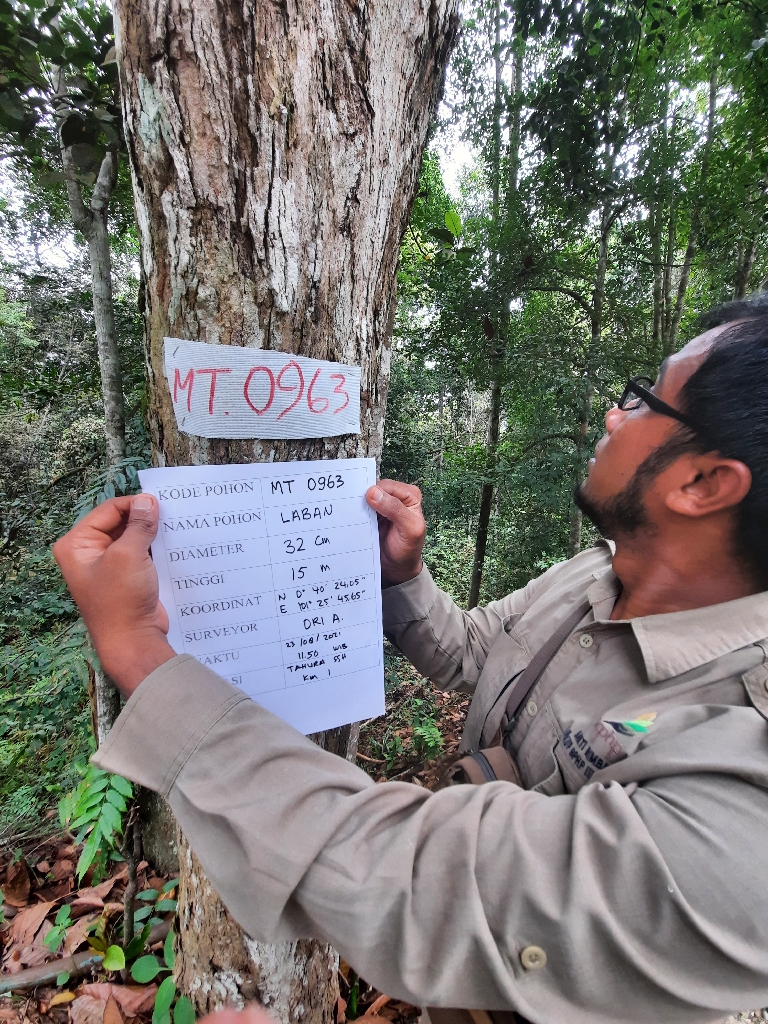 MT. 0963
KODE POHON MT 0963
NAMA POHON LABAN
DIAMETER 32 Cm
TINGGI 15 m
KOORDINAT N 0° 40' 24,05"
E 101° 25' 45,65"
SURVEYOR ORI A.
23/08/2021
AKTU 11.50 WIB
SI TAHURA SSH
Km 1